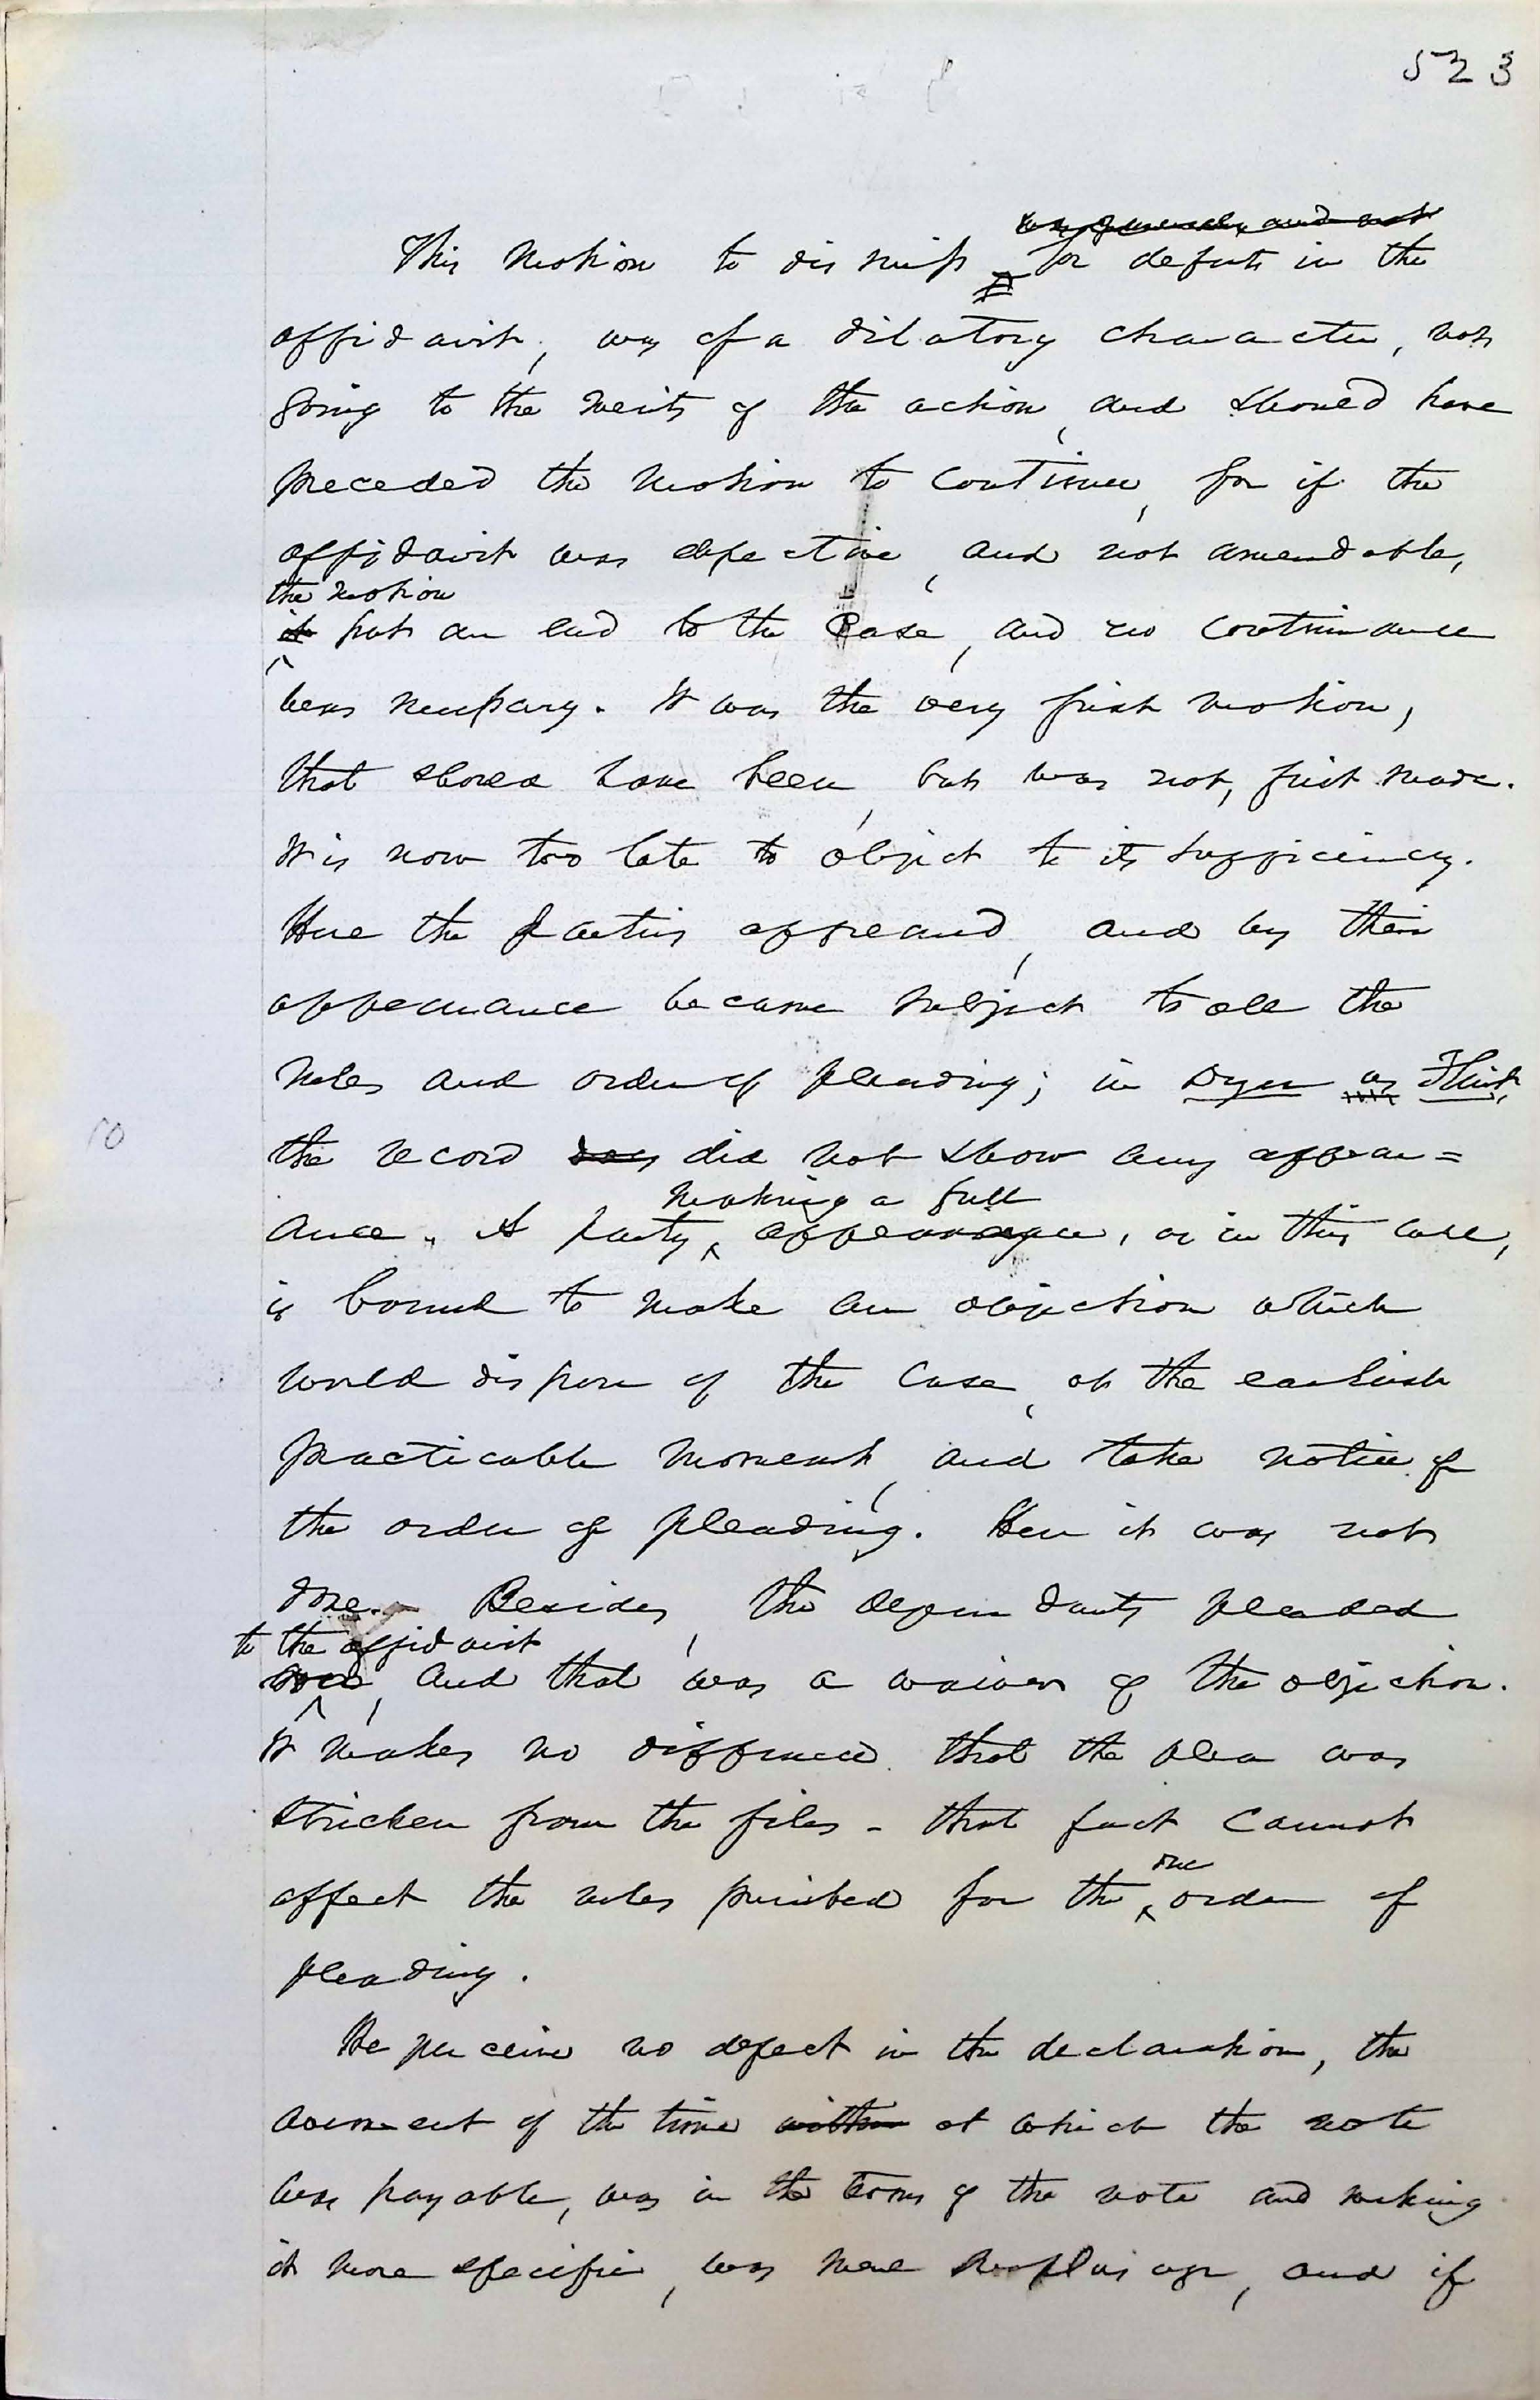 523
This motion to dismiss for defects in the
affidavit, was of a dilatory character, not
going to the merits of the action, and should have
preceded the motion to continue, for if the
affidavit was defective, and not amendable,
the motion
it put an end to the case, and no continuance
was necessary. It was the very first motion,
that should have been, but was not, first made.
It is now too late to object to its sufficiency.
Here the parties appeared, and by their
appearance became subject to all the
rules and order of pleading; in Dyer vs Flint,
the record did not show any appear=
making a full
ance. A party appearance, as in this case,
is bound to make an objection which
would dispose of the case, at the earliest
practicable moment, and take notice of
the order of pleading. Here it was not
done. Besides, the defendants pleaded
to the affidavit
and that was a waiver of the objection.
It makes no difference that the plea was
stricken from the files - that fact cannot
due
affect the rules prescribed for the order of
pleading.
We perceive no defect in the declaration, the
averment of the time within at which the note
was payable, was in the terms of the note and making
it more specific, was mere surplusage, and if
10